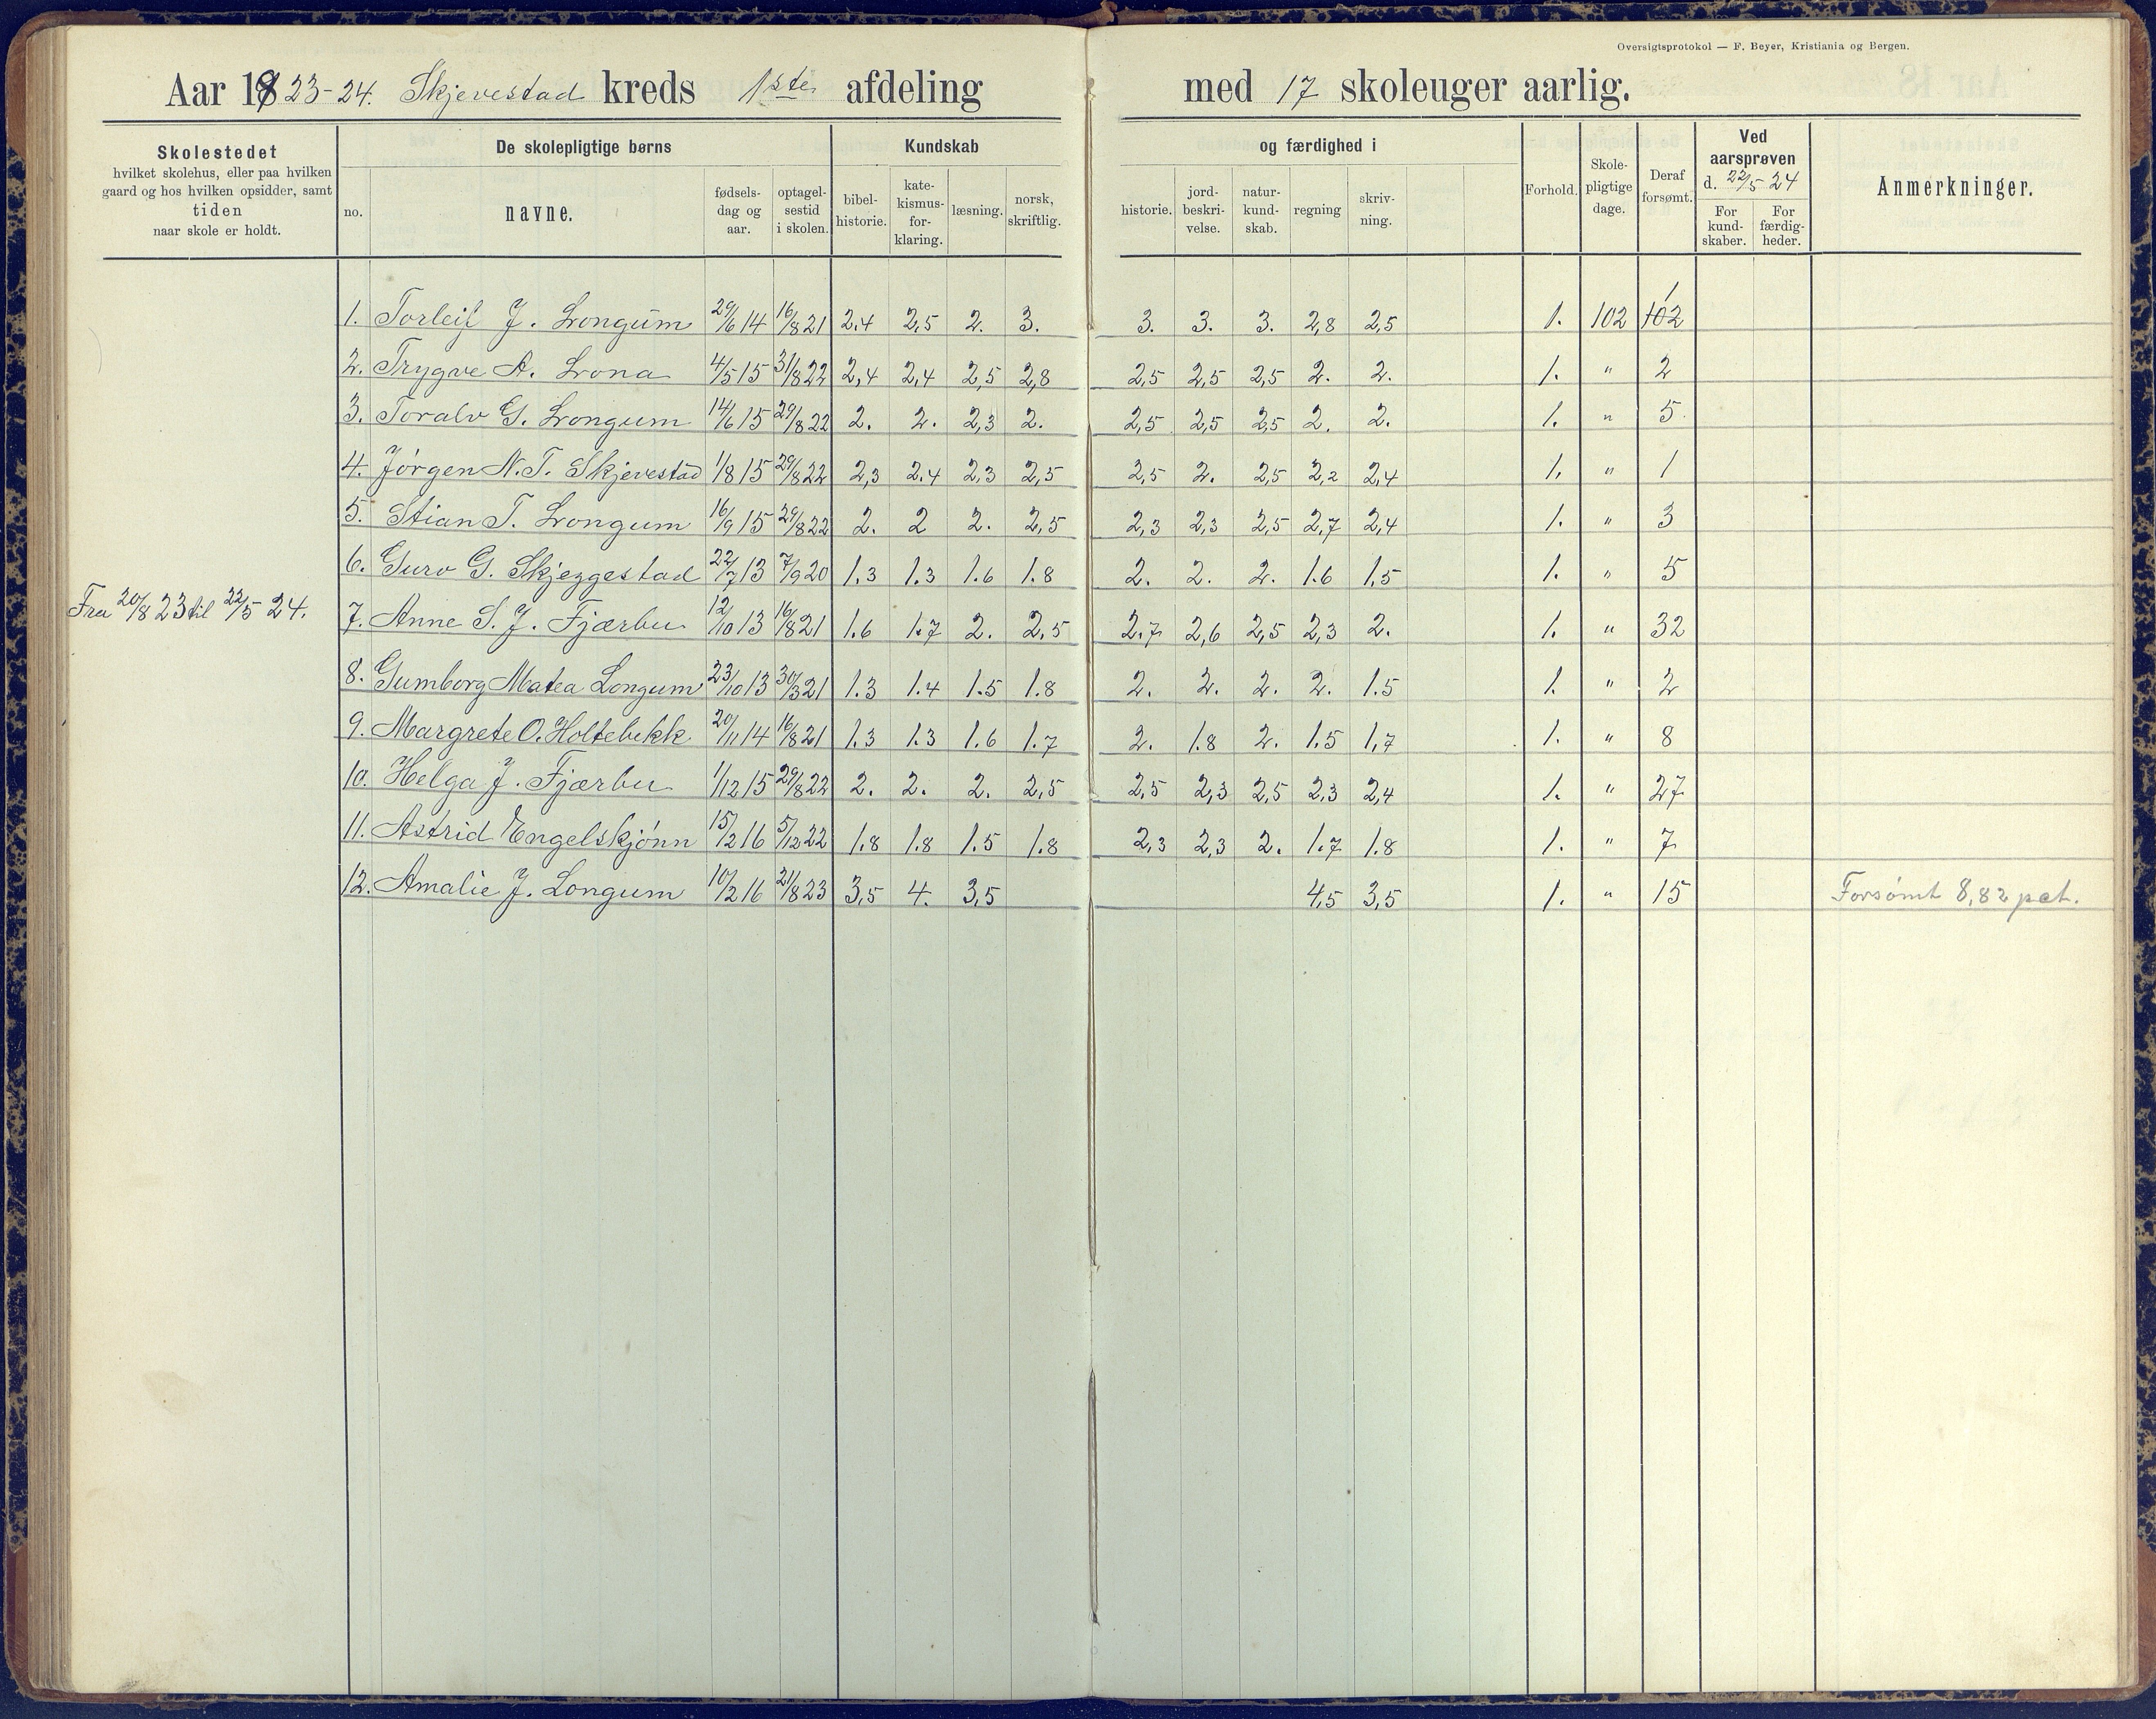 Oversigtsprotokol — F. Beyer, Kristiania og Bergen.
Aar 1923-24. Skjevestad kreds 1ste afdeling med 17 skoleuger aarlig.
Skolestedet
hvilket skolehus, eller paa hvilken
gaard og hos hvilken opsidder, samt
tiden
naar skole er holdt.
De skolepligtige børns
no.
navne.
fødsels-
dag og
aar.
optagel-
sestid
i skolen.
Kundskab
bibel-
historie.
kate-
kismus-
for-
klaring.
læsning.
norsk,
skriftlig.
og færdighed i
historie.
jord-
beskri-
velse.
natur-
kund-
skab.
regning
skriv-
ning.
Forhold.
Skole-
pligtige
dage.
Deraf
forsømt.
Ved
aarsprøven
d. 22/5 24
For
kund-
skaber.
For
færdig-
heder.
Anmerkninger.
1. Torleif J. Longum 29/6 14 16/8 21 2.4 2,5 2. 3. 3. 3. 3. 2,8 2,5 1. 102 102 1
2. Trygve A. Lona 4/5 15 31/8 22 2,4 2,4 2,5 2,8 2,5 2,5 2,5 2. 2. 1. " 2
3. Toralv G. Longum 14/6 15 29/8 22 2. 2. 2,3 2. 2,5 2,5 2,5 2. 2. 1. " 5
4. Jørgen N.T. Skjevestad 1/8 15 29/8 22 2,3 2.4 2,3 2,5 2,5 2. 2,5 2,2 2,4 1. " 1
5. Stian T. Longum 16/9 15 29/8 22 2. 2 2. 2,5 2,3 2,3 2,5 2,7 2,4 1. " 3
6. Guro G. Skjeggestad 22/7 13 7/9 20 1.3 1.3 1.6 1.8 2. 2. 2. 1.6 1,5 1. " 5
Fra 20/8 23 til 22/5 24.
7. Anne S. J. Fjærbu 12/10 13 16/8 21 1.6 1.7 2. 2,5 2.7 2,6 2,5 2,3 2. 1. " 32
8. Gumborg Matea Longum 23/10 13 30/3 21 1.3 1.4 1.5 1.8 2. 2. 2. 2. 1.5 1. " 2
9. Margrete O. Holtebekk 20/11 14 16/8 21 1.3 1.3 1.6 1.7 2. 1.8 2. 1.5 1,7 1. " 8
10. Helga J. Fjærbu 1/12 15 29/8 22 2. 2. 2. 2,5 2,5 2,3 2,5 2,3 2,4 1. " 27
11. Astrid Engelskjønn 15/2 16 5/12 22 1.8 1.8 1.5 1.8 2,3 2,3 2. 1.7 1.8 1. " 7
12. Amalie J. Longum 10/2 16 21/8 23 3,5 4. 3,5 4,5 3,5 1. " 15 Forsømt 8,82 pct.